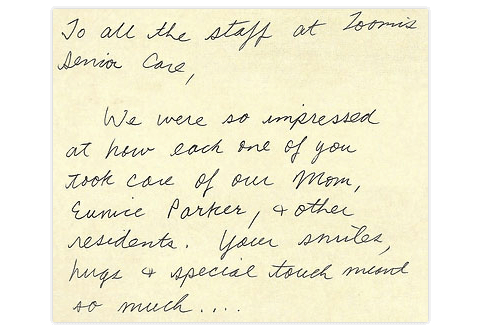 To all the staff at Loomis
Senior Care,
We were so impressed
at how each one of you
took care of our Mom,
Eunice Parker, & other
residents. Your smiles,
hugs & special touch meant
so much....